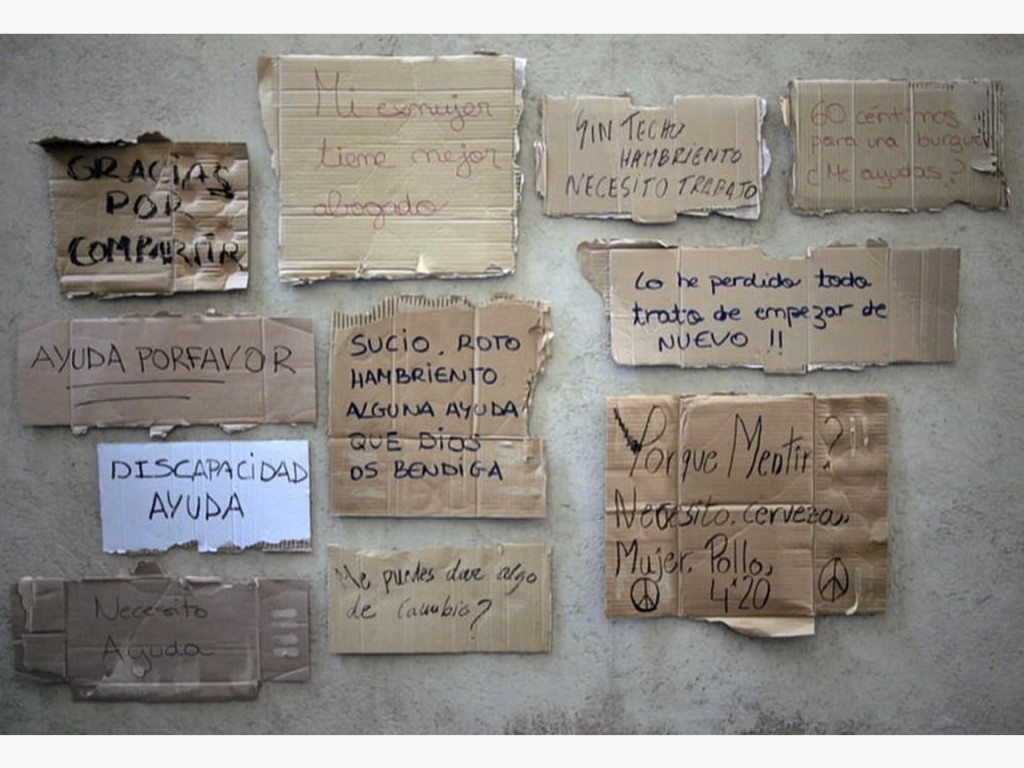 GRACIAS
POR
COMPARTIR
Mi exmujer
tiene mejor
abogado
SIN TECHO
HAMBRIENTO
NECESITO TRABAJO
60 céntimos
para una burguer
¿Me ayudas?
Lo he perdido todo
trato de empezar de
NUEVO !!
AYUDA PORFAVOR
SUCIO. ROTO
HAMBRIENTO
ALGUNA AYUDA
QUE DIOS
OS BENDIGA
¿Porque Mentir?
Necesito. cerveza,
Mujer. Pollo,
4'20
DISCAPACIDAD
AYUDA
Necesito
Ayuda
Me puedes dar algo
de Cambio?